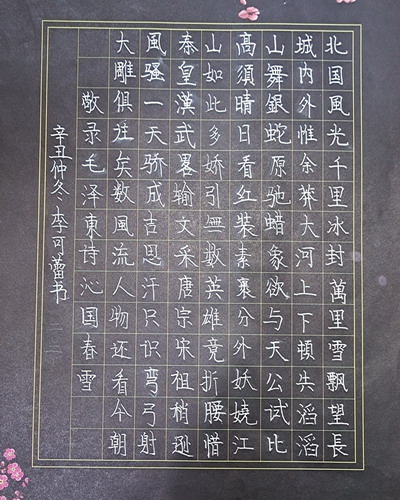 北国風光千里冰封萬里雪飄望長
城内外惟余莽大河上下頓失滔滔
山舞銀蛇原驰蜡象欲与天公试比
高須晴日看红装素裹分外妖娆江
山如此多娇引無数英雄竟折腰惜
秦皇漢武畧输文采唐宗宋祖稍逊
風骚一天骄成吉思汗只识弯弓射
大雕俱往矣数風流人物还看今朝
敬录毛泽東诗沁国春雪
辛丑仲冬李可蕾书